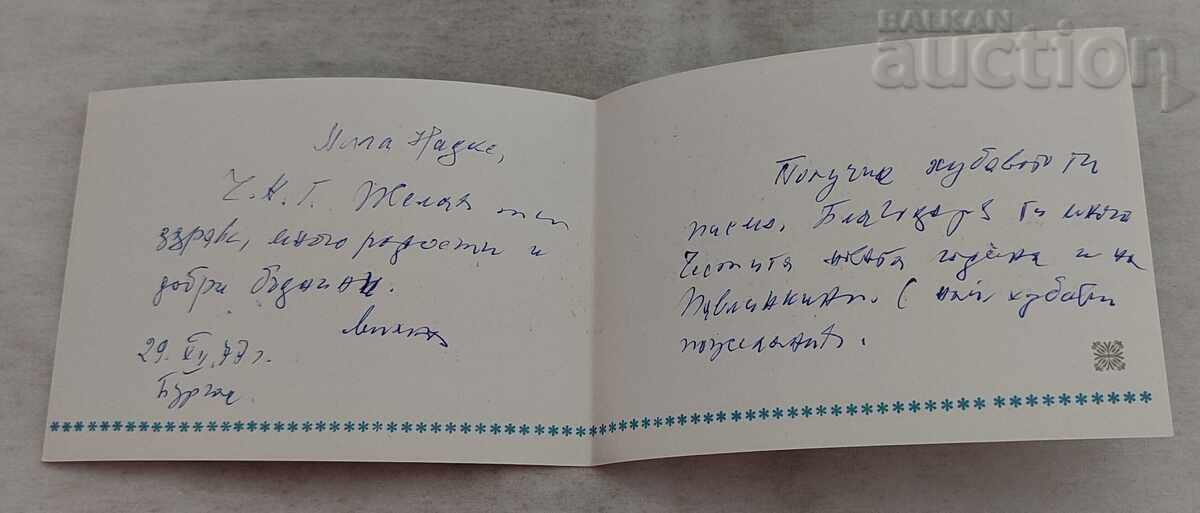 BALKAN
auction
Мила Надке,
Ч.Н.Г. Желая ти
здраве, много радости и
добри бъднини.
29. XII. 77 г.
Бургас
Получих хубавото ти
писмо. Благодаря ти много
Честита новата година и на
С най-хубави
пожелания.